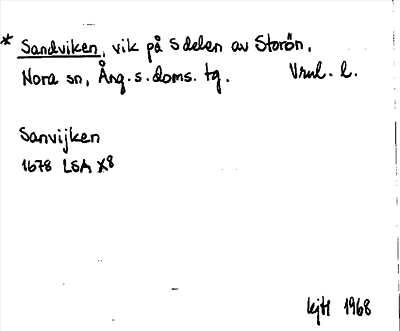 * Sandviken, vik på S delen av Storön.
Nora sn, Ång. s. doms. tg. Vrul. l.
Sanvijken
1678 LSA X8
kjH 1968